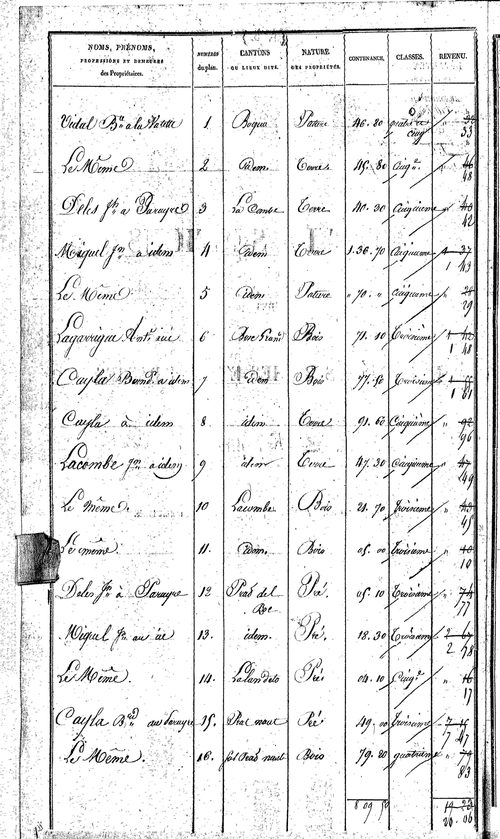 NOMS, PRÉNOMS, PROFESSIONS ET DEMEURES des Propriétaires. NUMÉROS du plan. CANTONS OU LIEUX DITS. NATURE DES PROPRIÉTÉS. CONTENANCE. CLASSES. REVENU.
Vidal 1 Pature 46. 80 cinq 33
Le Même 2 idem Terre 45. 80 Cinq 46 48
Deles Jh a Parayre 3 La Combe Terre 40. 30 Cinquieme 40 42
Miquel Jn a idem 4 idem Terre 1. 36. 70 Cinquieme 1 37 1 43
Le Même 5 idem Pature 70. " Cinquieme 28 29
Lagarrigue Ant. 6 Bois 71. 10 Troisieme 1 42 1 48
Cayla Bernd a idem 7 idem Bois 77. 50 Troisieme 1 55 1 61
Cayla à idem 8 idem Terre 91. 60 Cinquieme 92 96
Lacombe Jn a idem 9 idem Terre 47. 30 Cinquieme 47 49
Le même 10 Lacombe Bois 21. 70 Troisieme 43 45
Le même 11. idem Bois 05. 00 Troisieme 10 10
Deles Jh à Parayre 12 Prat del Roc Pré 05. 10 Troisieme 74 77
Miquel Jn au 13. idem Pré. 18. 30 Troisieme 2 67 2 78
Le Même. 14. Lalandeto Pré 04. 10 Cinq. 16 17
Cayla Bnd au Parayre 15. Prat naut Pré 49. 00 Troisieme 7 15 7 47
Le Même. 16. Prat naut Bois 79. 20 quatrieme 79 83
8 09 50 19 23
20 06